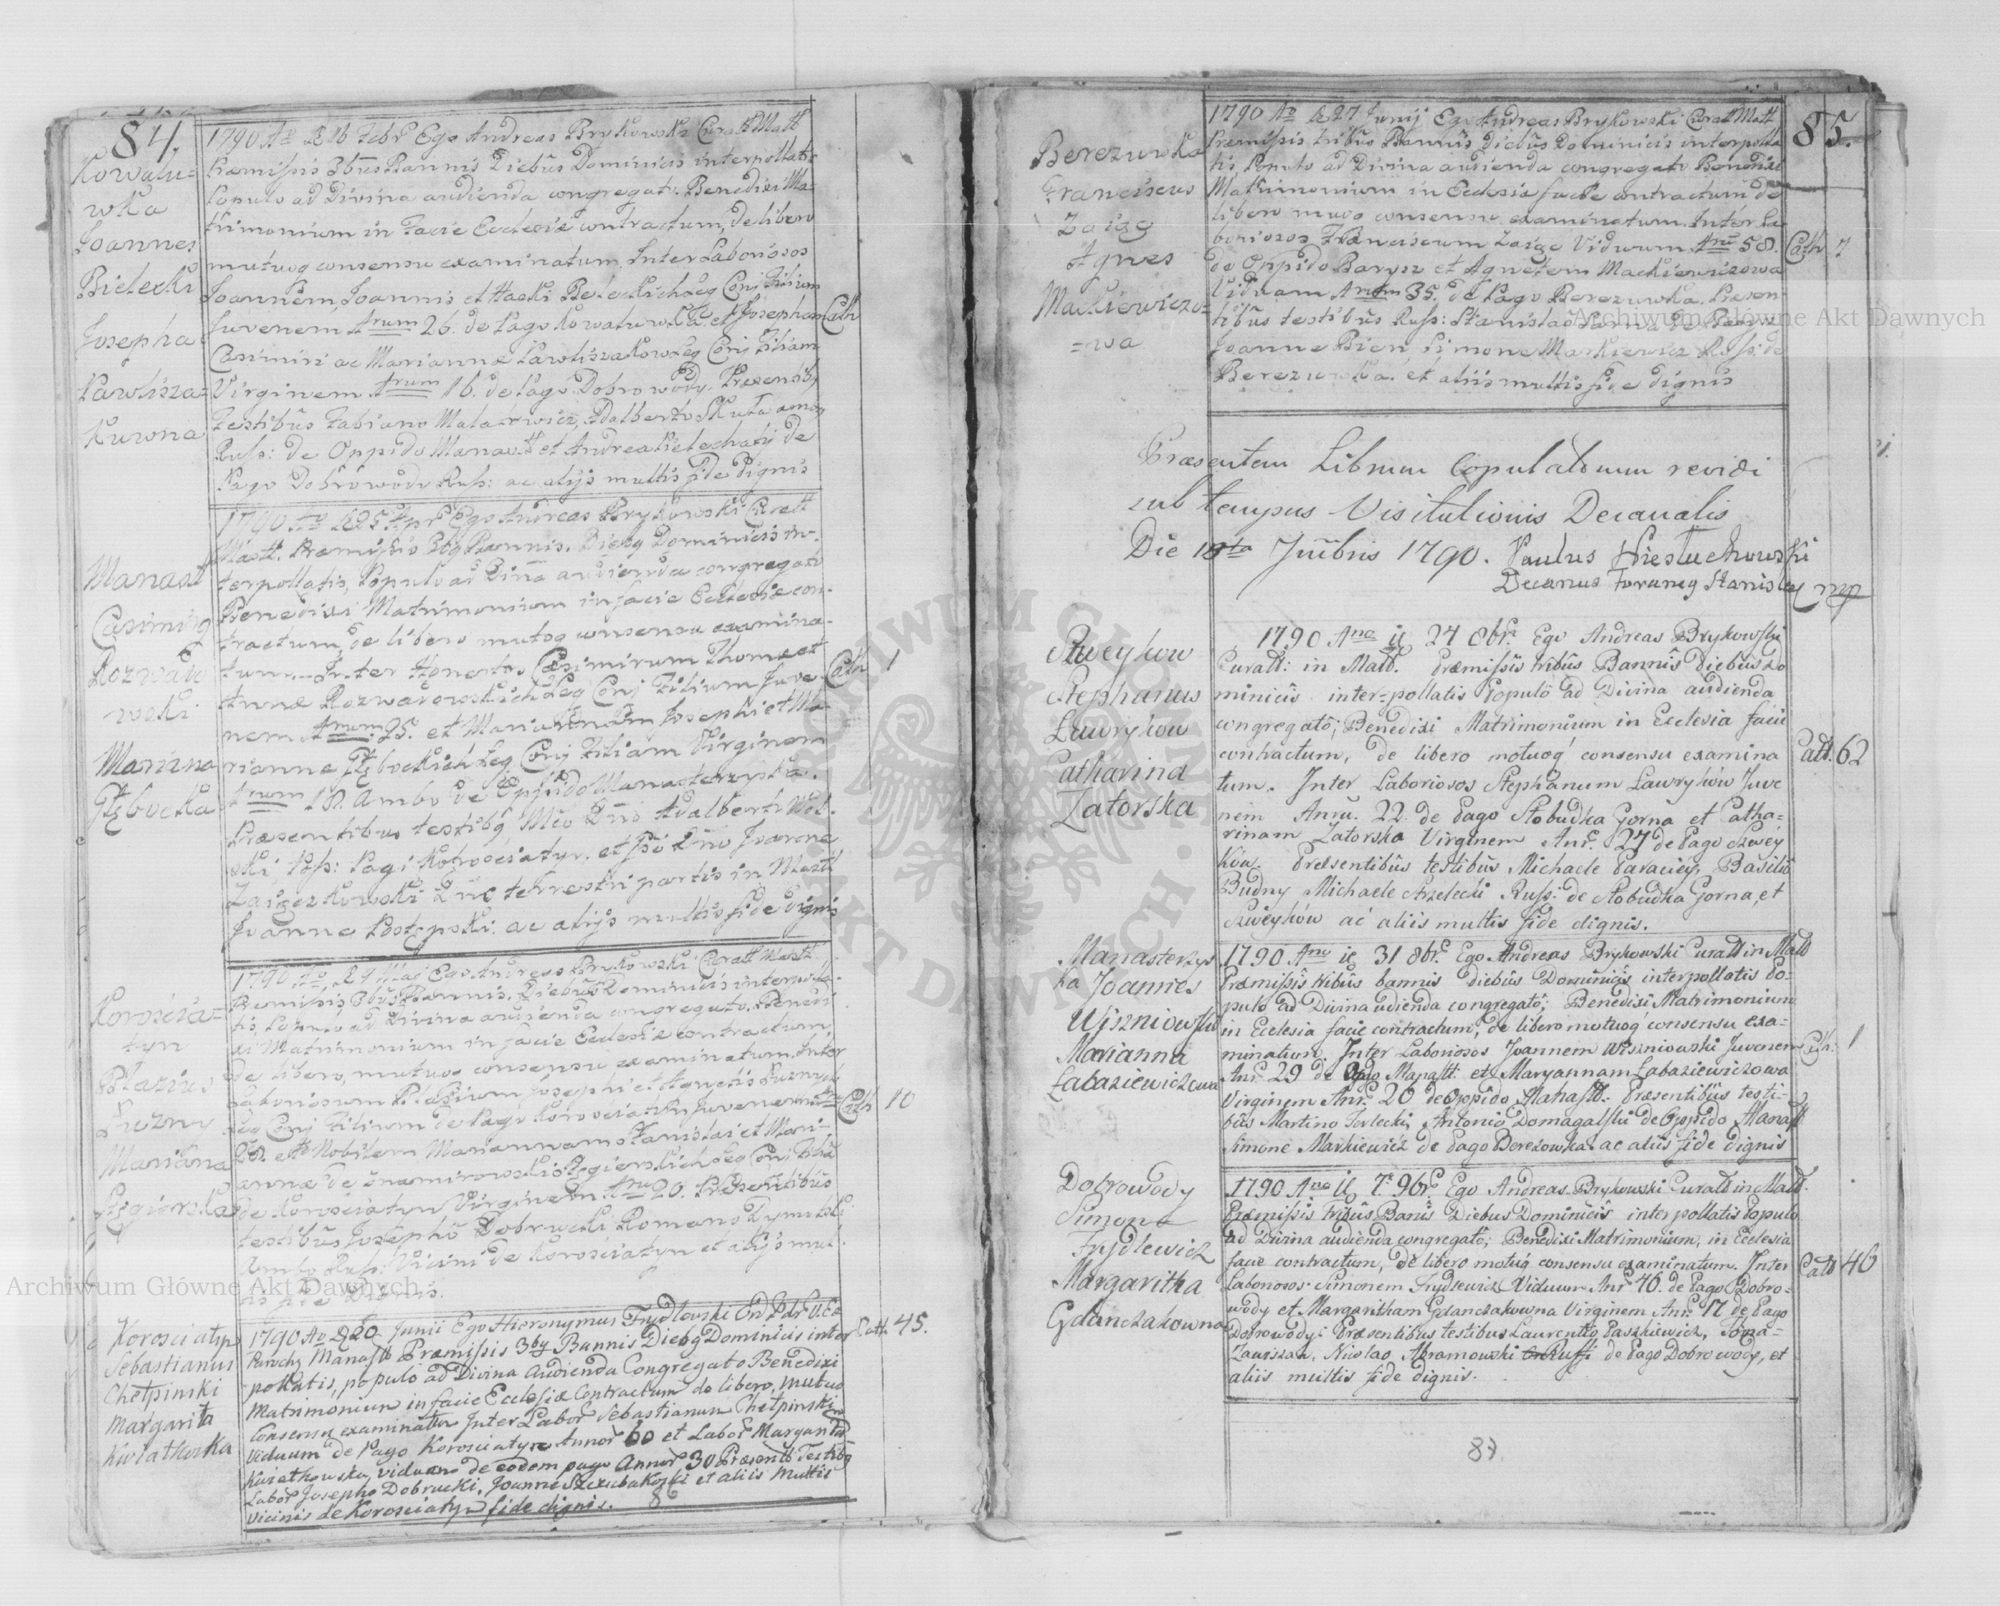 84.
Kowalu=
wka
Joannes
Bielecki
Josepha
Pawlisza=
kuwna
1790 Ao D 16 Febr Ego Andreas Brykowski Curat Matt
Præmissis 3bus Bannis Diebus Dominicis interpollatis
Populo ad Divina audienda congregato. Benedixi Ma-
trimonium in Facie Ecclesiæ contractum, de libero
mutuoq consensu examinatum. Inter Laboriosos
Joannem, Joannis et Leg Conj Filium
Juvenem Arum 26. de Pago Kowaluwka et Josepham
Casimiri ac Marianne Leg Conj Filiam
Virginem Arum 16. de Pago Dobrowody. Præsentib
Testibus Fabiano Adalberto
Russ: de Oppido Manast et Andrea de
Pago Dobrowody Russ: ac alijs multis fide Dignis
Cath
Manast
Casimirq
Rozwado
wski
Marianna
Głębocka
1790 Ao D 25 Apr Ego Andreas Brykowski Curatt
Mastt. Præmissis 3bq Bannis. Diebq Dominicis in-
terpollatis, Populo ad Divina audienda congregato
Benedixi Matrimonium in facie Ecclesiæ con-
tractum, de libero mutuoq consensu examina-
tum. Inter Honestos Casimirum Thomæ et
Annæ Leg Conj Filium Juve-
nem Arum 25. et Mariannam Josephi et Ma-
rianne Głębockich Leg Conj Filiam Virginem
Arum 18. Ambo de Oppido Manasterzyska.
Præsentibus testibq Adalberto Wol-
ski, Poss: Pagi Korosciatyn. et Ivanne
terrestri partis in Mastt
Ivanne ac alijs multis fide dignis
Cath 1
Korościa-
tyn
Blazius
Luzny
Mariana
Zgierska
1790 Ao D 9 Maj Ego Andreas Brykowski Curatt Mastt
Præmissis 3bus Bannis. Diebus Dominicis interpolla-
tis, Populo ad Divina audienda congregato. Bened
xi Matrimonium in facie Ecclesiæ contractum,
de libero, mutuoq consensu examinatum. Inter
Laboriosum Blasium Josephi et Agnetis
Leg Conj Filium de Pago Korosciatyn Juvenem
28. et Nobilem Mariannam Stanislai et Mari-
annæ de Leg Conj Filia
de Korościatyn Virginem Anu 20. Præsentibus
testibus Josepho Dobrucki Romano
Ambo Russ: Vicini de Korosciatyn et alijs mul
tis fide Dignis.
Cath 10
Korosciatyn
Sebastianus
Chełpinski
Margarita
Kwiatkoska
1790 Ao D 20 Junii Ego Hieronymus Frydlewski
Parochq Manastt Præmissis 3bq Bannis Diebq Dominicis inter
pollatis, populo ad Divina Audienda Congregato Benedixi
Matrimonium in facie Ecclesiæ Contractum de libero, mutuo
Consensu examinatu Inter Labor Sebastianum Chełpinski
viduum de Pago Korosciatyn Annor 60 et Labor Margarita
Kwiatkowska viduam de eodem pago Annor 30 Præsentt Testibq
Labor Josepho Dobrucki, Joanne Szczubakoski et aliis Multis
vicinis de Korosciatyn fide dignis.
Cath. 45.
86
85.
Berezuwka
Franciscus
Zaigg
Agnes
Mackiewiczo=
=wa
1790 Ao D 27 Junij Ego Andreas Brykowski Curat Matt
Præmissis tribus Bannis Diebus Dominicis interpolla
tis, Populo ad Divina audienda congregato Benedixi
Matrimonium in Ecclesiæ facie contractum de
libero muoq consensu examinatum. Inter La
boriosos Franciscum Viduum Anu 58.
de Oppido Barysz et Agnetem Mackiewiczowa
Viduam Arum 35. de Pago Berezuwka. Præsen-
tibus testibus Russ: Stanislao de Barysz
Joanne Bien, Simone Markiewicz Russ: de
Berezuwka. et aliis multis fide dignis
Cath 7
Præsentem Librum Copulatorum revidi
sub tempus Visitationis Decanalis
Die 10ta 1790. Paulus
Decanus Foraneq Stanislaq mp
Szweykow
Stephanus
Lawrykow
Catharina
Zatorska
1790 Ano ie 24 8br. Ego Andreas Brykowski
Curatt: in Matt. Præmissis tribus Bannis diebus Do
minicis inter-pollatis Populo ad Divina audienda
congregato; Benedixi Matrimonium in Ecclesia facie
contractum, de libero motuoq consensu examina
tum. Inter Laboriosos Stephanum Lawryków Juve
nem Annu. 22. de Pago Słobudka Gorna et Catha-
rinam Zatorska Virginem Anr. 27 de Pago Szwey
ków. Præsentibus testibus Michaele Basilio
Budny Michaele Strzelecki Russ: de Słobudka Gorna, et
Szweyków ac aliis multis fide dignis.
Catt. 62
Manasterzys
ka Joannes
Wiszniowski
Marianna
Łabaziewiczowna
1790 Ano ie 31 8br. Ego Andreas Brykowski Curatt in Matt
Præmissis tribus bannis diebus Dominicis interpollatis Po-
pulo ad Divina audienda congregato; Benedixi Matrimonium
in Ecclesia facie contractum, de libero motuoq consensu exa-
minatum. Inter Laboriosos Joannem Wiszniowski Juvenem
Anr. 29 de Manastt. et Maryannam Łabaziewiczowa
Virginem Anr. 20 de Oppido Manastt. Præsentibus testi-
bus Martino Terlecki, Antonio Domagalski de Oppido Manastt
Simone Markiewicz de Pago Berezowka ac aliis fide dignis
Cath. 1
Dobrowody
Simon
Frydlewicz
Margaritha
Gdanczakowna
1790 Ano ie 7. 9br. Ego Andreas Brykowski Curatt in Matt.
Præmissis tribus Banis Diebus Dominicis interpollatis Populo
ad Divina audienda congregato; Benedixi Matrimonium, in Ecclesia
facie contractum, de libero motuq consensu examinatum. Inter
Laboriosos Simonem Frydlewicz Viduum Anr. 46. de Pago Dobro-
wody et Margaritham Gdanczakowna Virginem Anr. 17 de Pago
Dobrowody: Præsentibus testibus Laurentto Paszkiewicz, Toma-
Nicolao Abramowski Russi de Pago Dobrowody, et
aliis multis fide dignis.
Catt 46
87.
Archiwum Główne Akt Dawnych
Archiwum Główne Akt Dawnych
ARCHIWUM GŁÓWNE AKT DAWNYCH